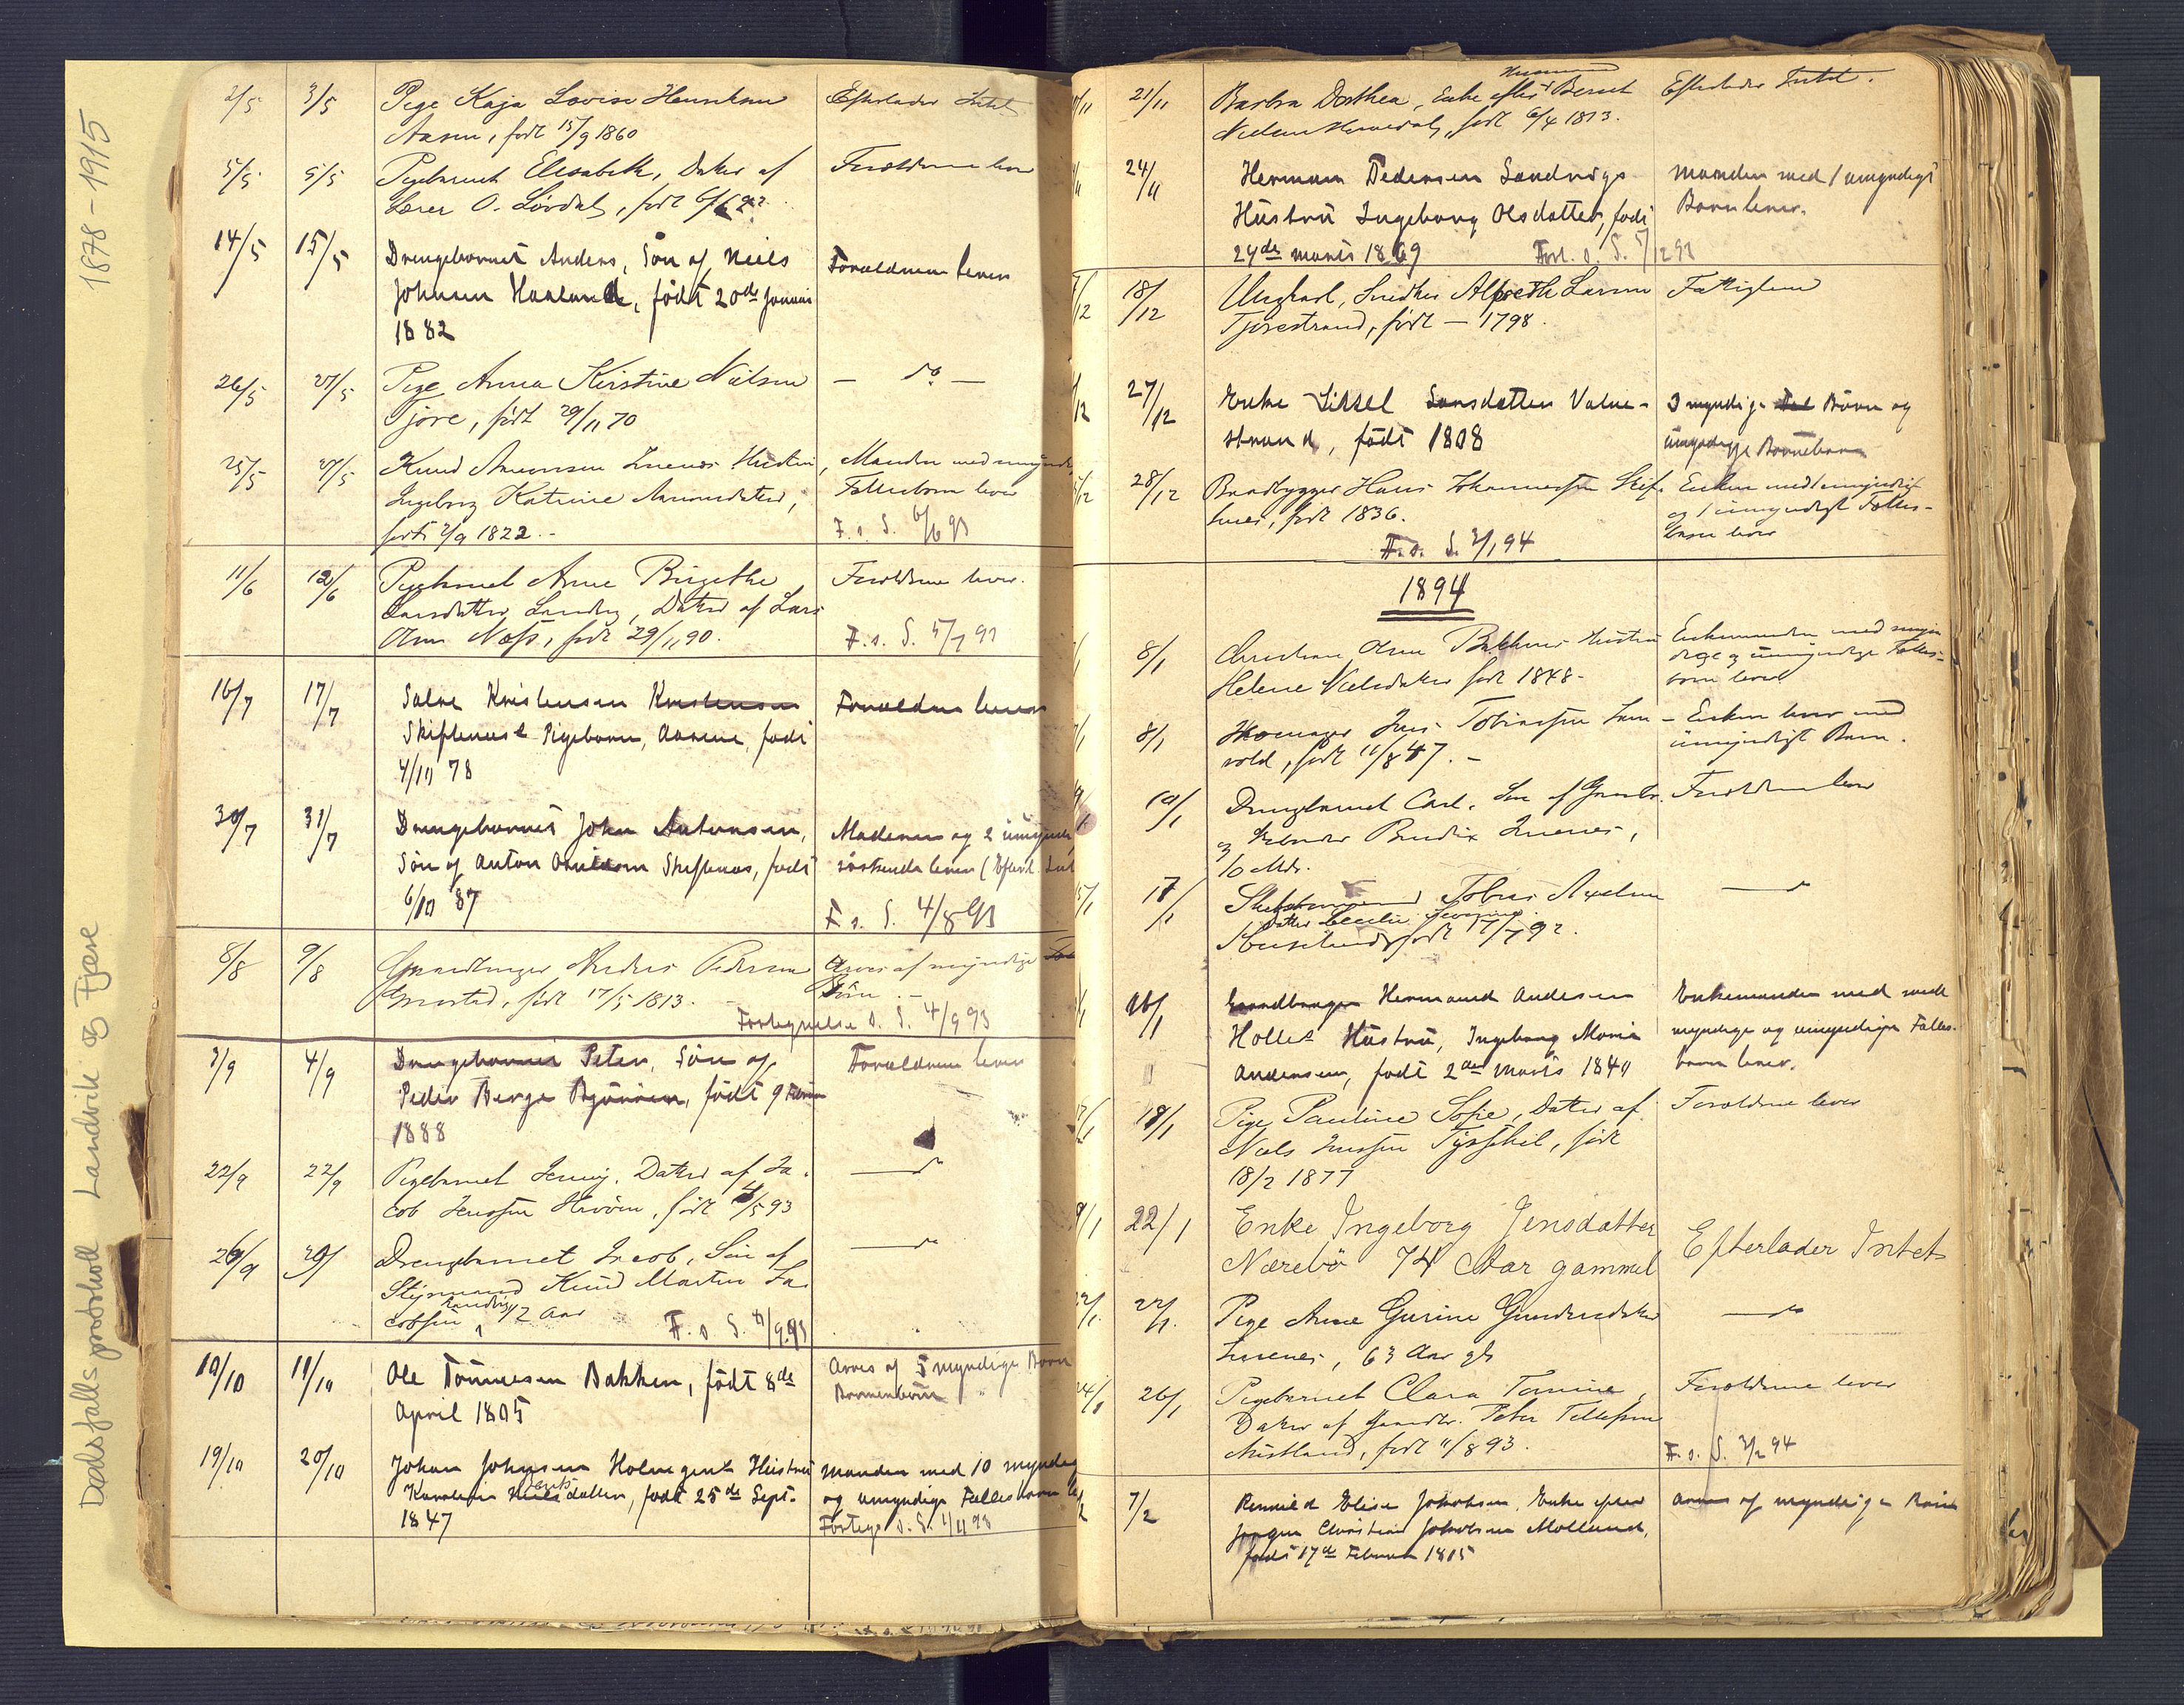 1878-1915
Dødsfalls protokoll Landvik og Fjære
2/5 3/5 Pige Kaja Lovise Henriksen Efterlader Intet
Aasen, født 15/9 1860
5/5 5/5 Pigebarnet Elisabeth, Datter af Forældrene lever
Lærer O. Løvdal, født
14/5 15/5 Drengebarnet Anders, Søn af Niels Forældrene lever
Johnsen Haaland, født 20de Januar
1882
26/5 27/5 Pige Anna Kirstine Nielsen — do —
Tjore, født 29/11 70
25/5 27/5 Knud Amundsen Inenes Hustru, Manden med
Ingeborg Katrine Aanonsdatter, Fællesbørn lever
født 2/9 1822.- F. o. S. 6/6 93
11/6 12/6 Pigebarnet Anne Birgithe Forældrene lever.
Larsdatter, Datter af Lars
Olsen Næss, født 29/11 90. F. o. S. 5/7 93
16/7 17/7 Salve Kristensen Kristensen Forældrene lever
Skiftenes Pigebarn, født
4/10 78
30/7 31/7 Drengebarnet John Antonsen, Moderen og 2
Søn af Anton Skiftenes, født søskende lever (Efterl. Int
6/10 87 F. o. S. 4/8 93
8/8 9/8 Gaardbruger Anders Pedersen Arves af myndige
Grimstad, født 17/5 1813. Børn.-
Fortegnelse o. S. 4/9 93
3/9 4/9 Drengebarnet Peter, Søn af Forældrene lever
Peder Berge født 9
1888
22/9 22/9 Pigebarnet Jenny, Datter af Ja-
cob Jensen født 4/5 93
26/9 Drengebarnet Jacob, Søn af
Styrmand Knud Martin Ja-
cobsen Landvig 1/2 Aar F. o. S.
10/10 11/10 Ole Tønnesen Bakken, født 8de Arves af 5 myndige Børn
April 1805 Børnebørn
19/10 20/10 Johan Johnsen Holmgens Hustru Manden med 10
datter, født 25de Sept. og umyndige Fællesbørn
1847 Forteg. o. S. 1/11 93
21/11 Barbra Dorthea, Enke efter Husmand Bernt Efterlader Intet.
Nielsen født 6/4 1813.
24/11 Herman Pedersen Landvigs Manden med 1 umyndigt
Hustru Ingeborg Olsdatter, født Barn lever.
24de Marts 1869 Fort. o. S. 5/12 93
18/12 Ungkarl, Snedker Larsen Fattiglem
Tjorestrand, født — 1798.
27/12 Enke datter 3 myndige Børn og
strand, født 1808 umyndige Børnebørn
28/12 Baadbygger Hans Johannesen Skif- Enken med
tenes, født 1836. og 1 umyndigt Fælles-
F. o. S. 2/1 94 barn lever
1894
8/1 Christian Olsen Hustru Enkemanden med myn-
Helene Nielsdatter født 1848- dige og umyndige Fælles-
børn lever
8/1 Skomager Jens Tobiassen Enken lever med
vold, født 11/8 47.- umyndigt Barn.
10/1 Drengebarnet Carl, Søn af Gaardbr. Forældrene lever
og Inenes,
10 Mdr.
17/1 Tobias Axelsen
Datter Cecilie
født 17/7 92.
16/1 Gaardbruger Hermand Andersen Enkemanden med
Holtes Hustru, Ingeborg Marie myndige og umyndige Fælles-
Andersen, født 2den Marts 1840 børn lever.
18/1 Pige Pauline Sofie, Datter af Forældrene lever
Niels Jensen født
18/2 1877
22/1 Enke Ingeborg Jensdatter Efterlader Intet
Nærebö 74 Aar gammel
22/1 22/1. Pige Anne Gurine Gundersdatter
Inenes, 63 Aar gl.
24/1 26/1 Pigebarnet Clara Tomine, Forældrene lever
Datter af Gaardbr. Peter Tellefsen
født 11/8 93. F. o. S. 2/2 94
7/2 Elise Jakobsen, Enke efter Arves af myndige Børn
Jørgen Christian Jakobsen Molland,
født 17de Februar 1815